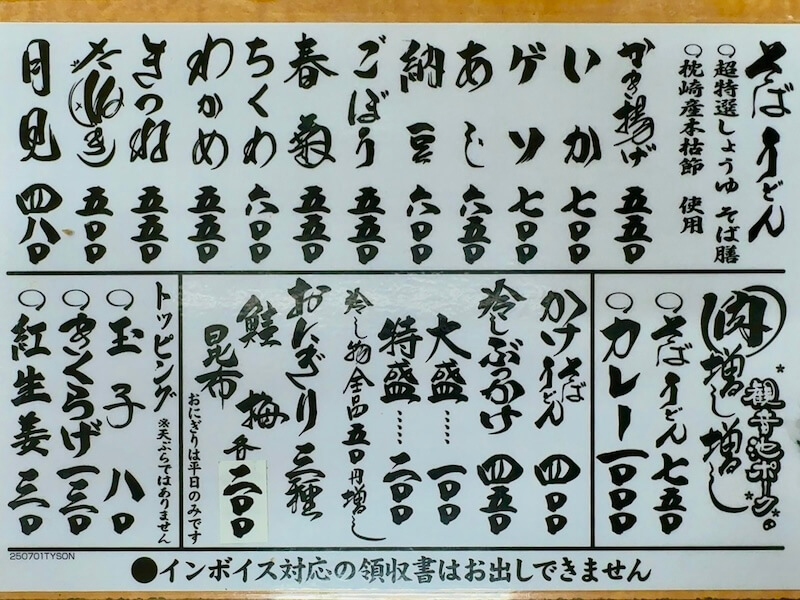 そばうどん
○超特選しょうゆ そば膳
○枕崎産本枯節 使用
かき揚げ 五五〇
いか 七〇〇
ゲソ 七〇〇
あじ 六五〇
納豆 六〇〇
ごぼう 五五〇
春菊 五五〇
ちくわ 六〇〇
わかめ 五五〇
きつね 五五〇
たぬき 五〇〇
月見 四八〇
肉増し増し
観音池ポーク。
○そばうどん 七五〇
○カレー 一〇〇〇
かけそばうどん 四〇〇
冷しぶっかけ 四五〇
大盛…… 一〇〇
特盛…… 二〇〇
冷し物全品五〇円増し
おにぎり三種
鮭 梅 昆布 各二〇〇
おにぎりは平日のみです
トッピング ※天ぷらではありません
○玉子 八〇
○きくらげ 一三〇
○紅生姜 三〇
250701TYSON
●インボイス対応の領収書はお出しできません